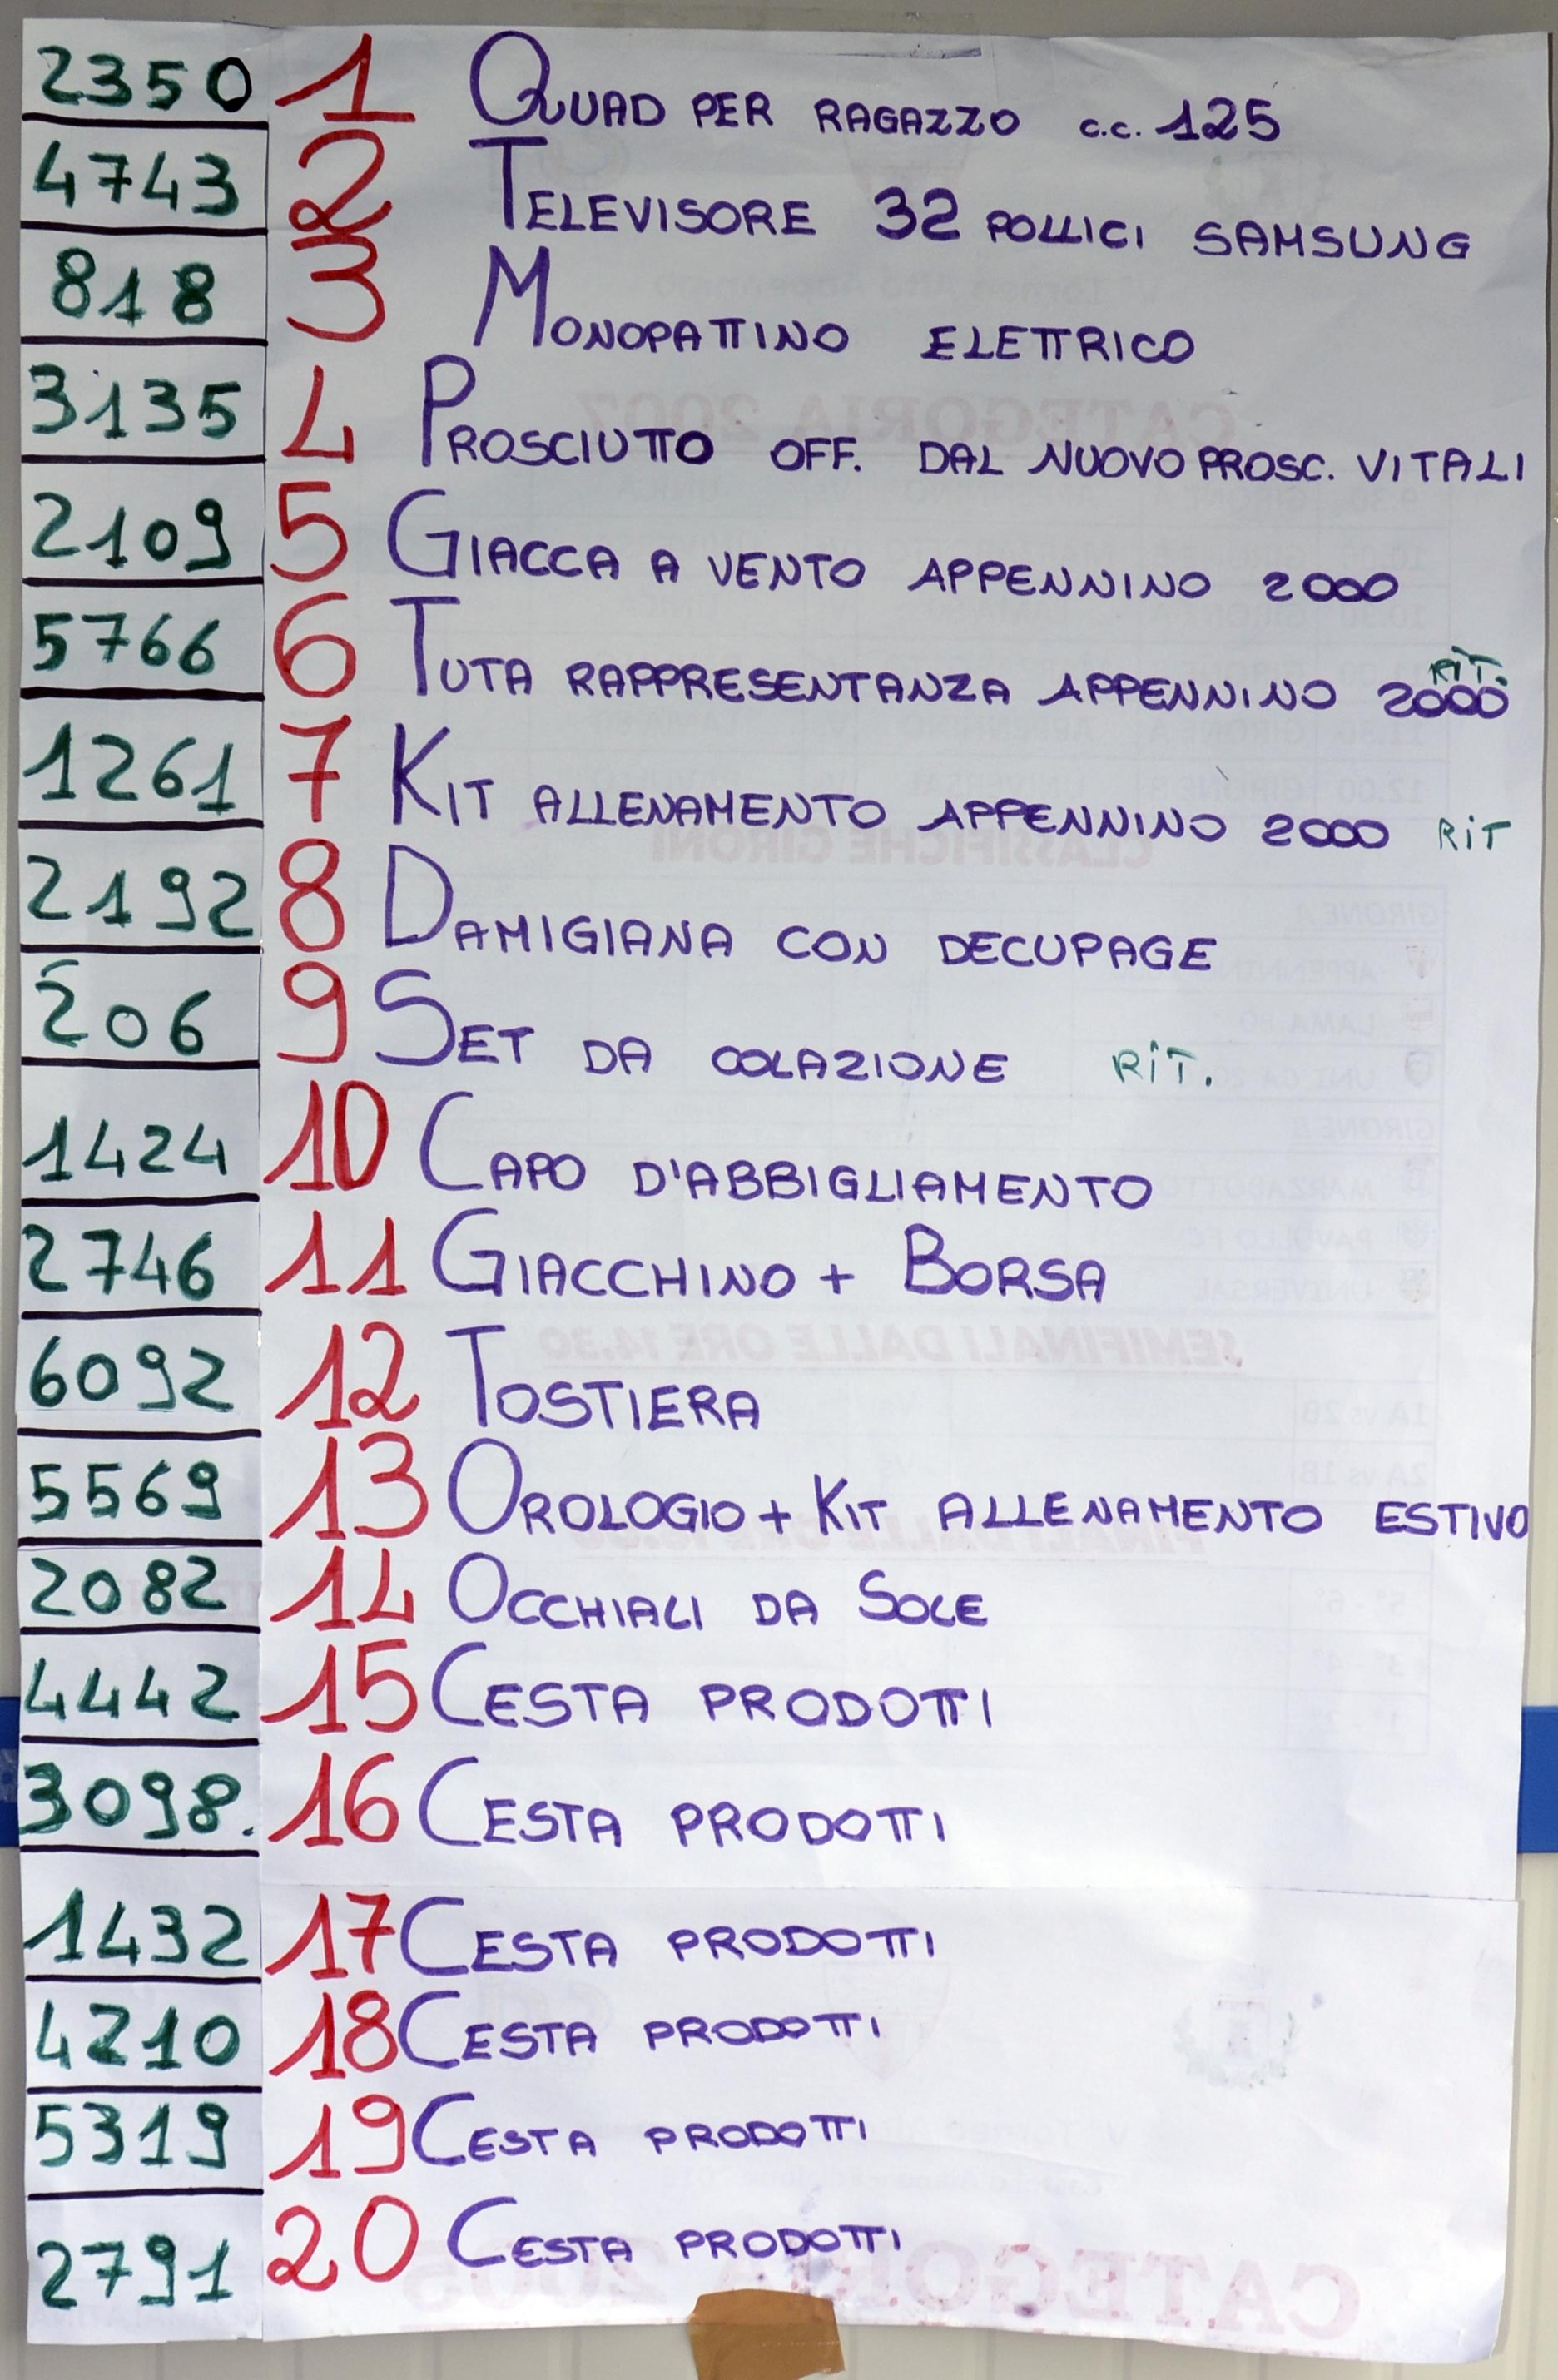 2350 1 QUAD PER RAGAZZO c.c. 125
4743 2 TELEVISORE 32 POLLICI SAMSUNG
818 3 MONOPATTINO ELETTRICO
3135 4 PROSCIUTTO OFF. DAL NUOVO PROSC. VITALI
2109 5 GIACCA A VENTO APPENNINO 2000
5766 6 TUTA RAPPRESENTANZA APPENNINO 2000 RIT.
1261 7 KIT ALLENAMENTO APPENNINO 2000 RIT
2192 8 DAMIGIANA CON DECUPAGE
206 9 SET DA COLAZIONE RIT.
1424 10 CAPO D'ABBIGLIAMENTO
2746 11 GIACCHINO + BORSA
6092 12 TOSTIERA
5569 13 OROLOGIO + KIT ALLENAMENTO ESTIVO
2082 14 OCCHIALI DA SOLE
4442 15 CESTA PRODOTTI
3098. 16 CESTA PRODOTTI
1432 17 CESTA PRODOTTI
4210 18 CESTA PRODOTTI
5319 19 CESTA PRODOTTI
2791 20 CESTA PRODOTTI